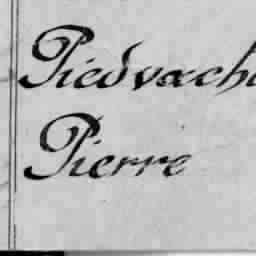 Piedvache
Pierre